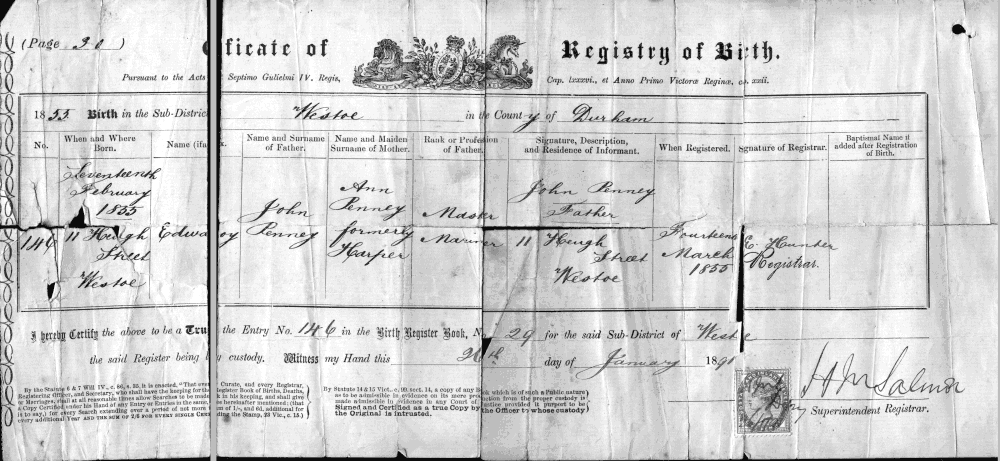 (Page 30)
tificate of Registry of Birth.
Pursuant to the Acts Septimo Gulielmi IV. Regis, Cap. lxxxvi., et Anno Primo Victoræ Reginæ, xxii.
1855 Birth in the Sub-District Westoe in the County of Durham
No. When and Where Born. Name (if a Name and Surname of Father. Name and Maiden Surname of Mother. Rank or Profession of Father. Signature, Description, and Residence of Informant. When Registered. Signature of Registrar. Baptismal Name if added after Registration of Birth.
146 Seventeenth February 1855 11 Heugh Street Westoe
Edwa oy
John Penney
Ann Penney formerly Harper
Master Mariner
John Penney Father 11 Heugh Street Westoe
Fourteenth March 1855
E. Hunter Registrar.
I hereby Certify the above to be a True the Entry No. 146 in the Birth Register Book, N 29 for the said Sub-District of Westoe
the said Register being custody. Witness my Hand this 26th day of January 1891
H M Salmon
Superintendent Registrar.
By the Statute 6 & 7 Will IV., c. 86, s. 35, it is enacted, "That ever Curate, and every Registrar,
Registering Officer, and Secretary, shall have the keeping for the Register Book of Births, Deaths,
or Marriages, shall at all reasonable times allow Searches to be made in his keeping, and shall give
a Copy Certified under his Hand of any Entry or Entries in the same, hereafter mentioned; (that
is to say), for every Search extending over a period of not more of 1/-, and 6d. additional for
every additional Year AND THE SUM OF 2/6 FOR EVERY SINGLE CER ding the Stamp, 23 Vic., c. 15)
By Statute 14 & 15 Vict., c. 99, sect. 14, a copy of any Book which is of such a Public nature
as to be admissible in evidence on its mere production from the proper custody is
made admissible in evidence in any Court of Justice provided it purport to be
Signed and Certified as a true Copy by the Officer to whose custody
the Original is intrusted.